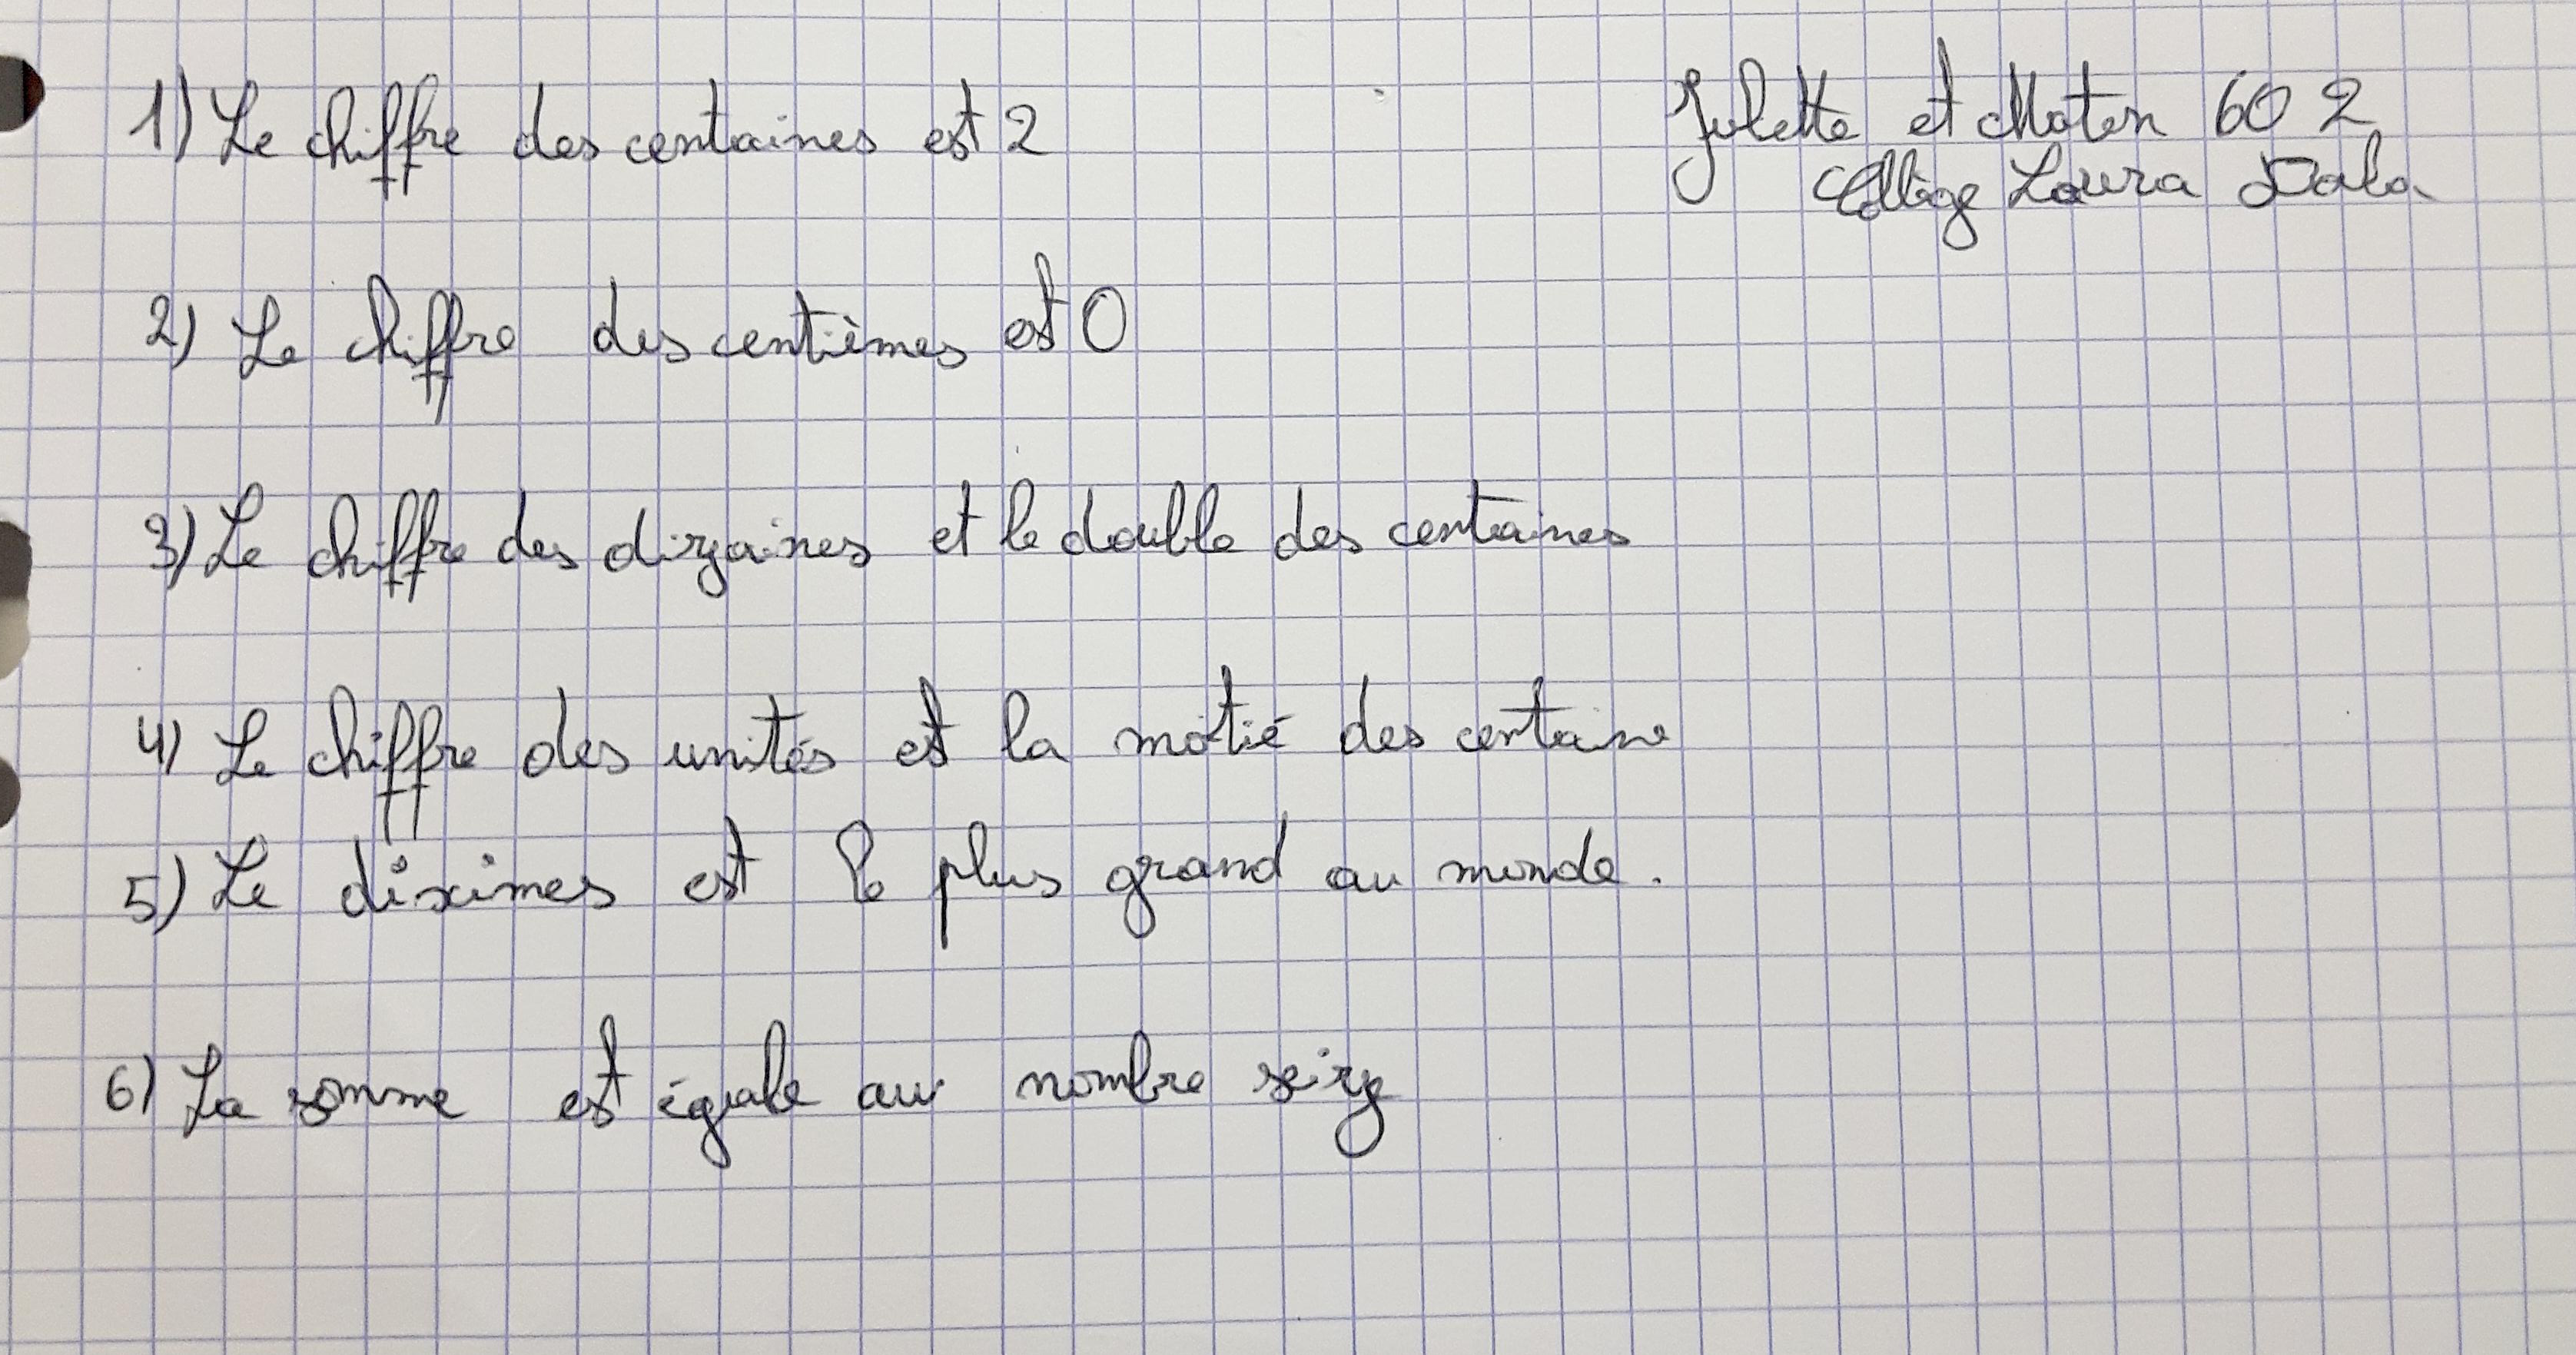 Juliette et Maten 602
Collège Laura Dala
1) Le chiffre des centaines est 2
2) Le chiffre des centièmes est 0
3) Le chiffre des dizaines et le double des centaines
4) Le chiffre des unités est la motié des centaine
5) Le dixìmes est le plus grand au monde.
6) La somme est égale au nombre seize